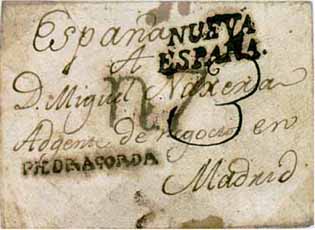 España NUEVA
A ESPAÑA.
D. Miguel Naxera
Adgente de negocios en
PIEDRAGORDA
Madrid